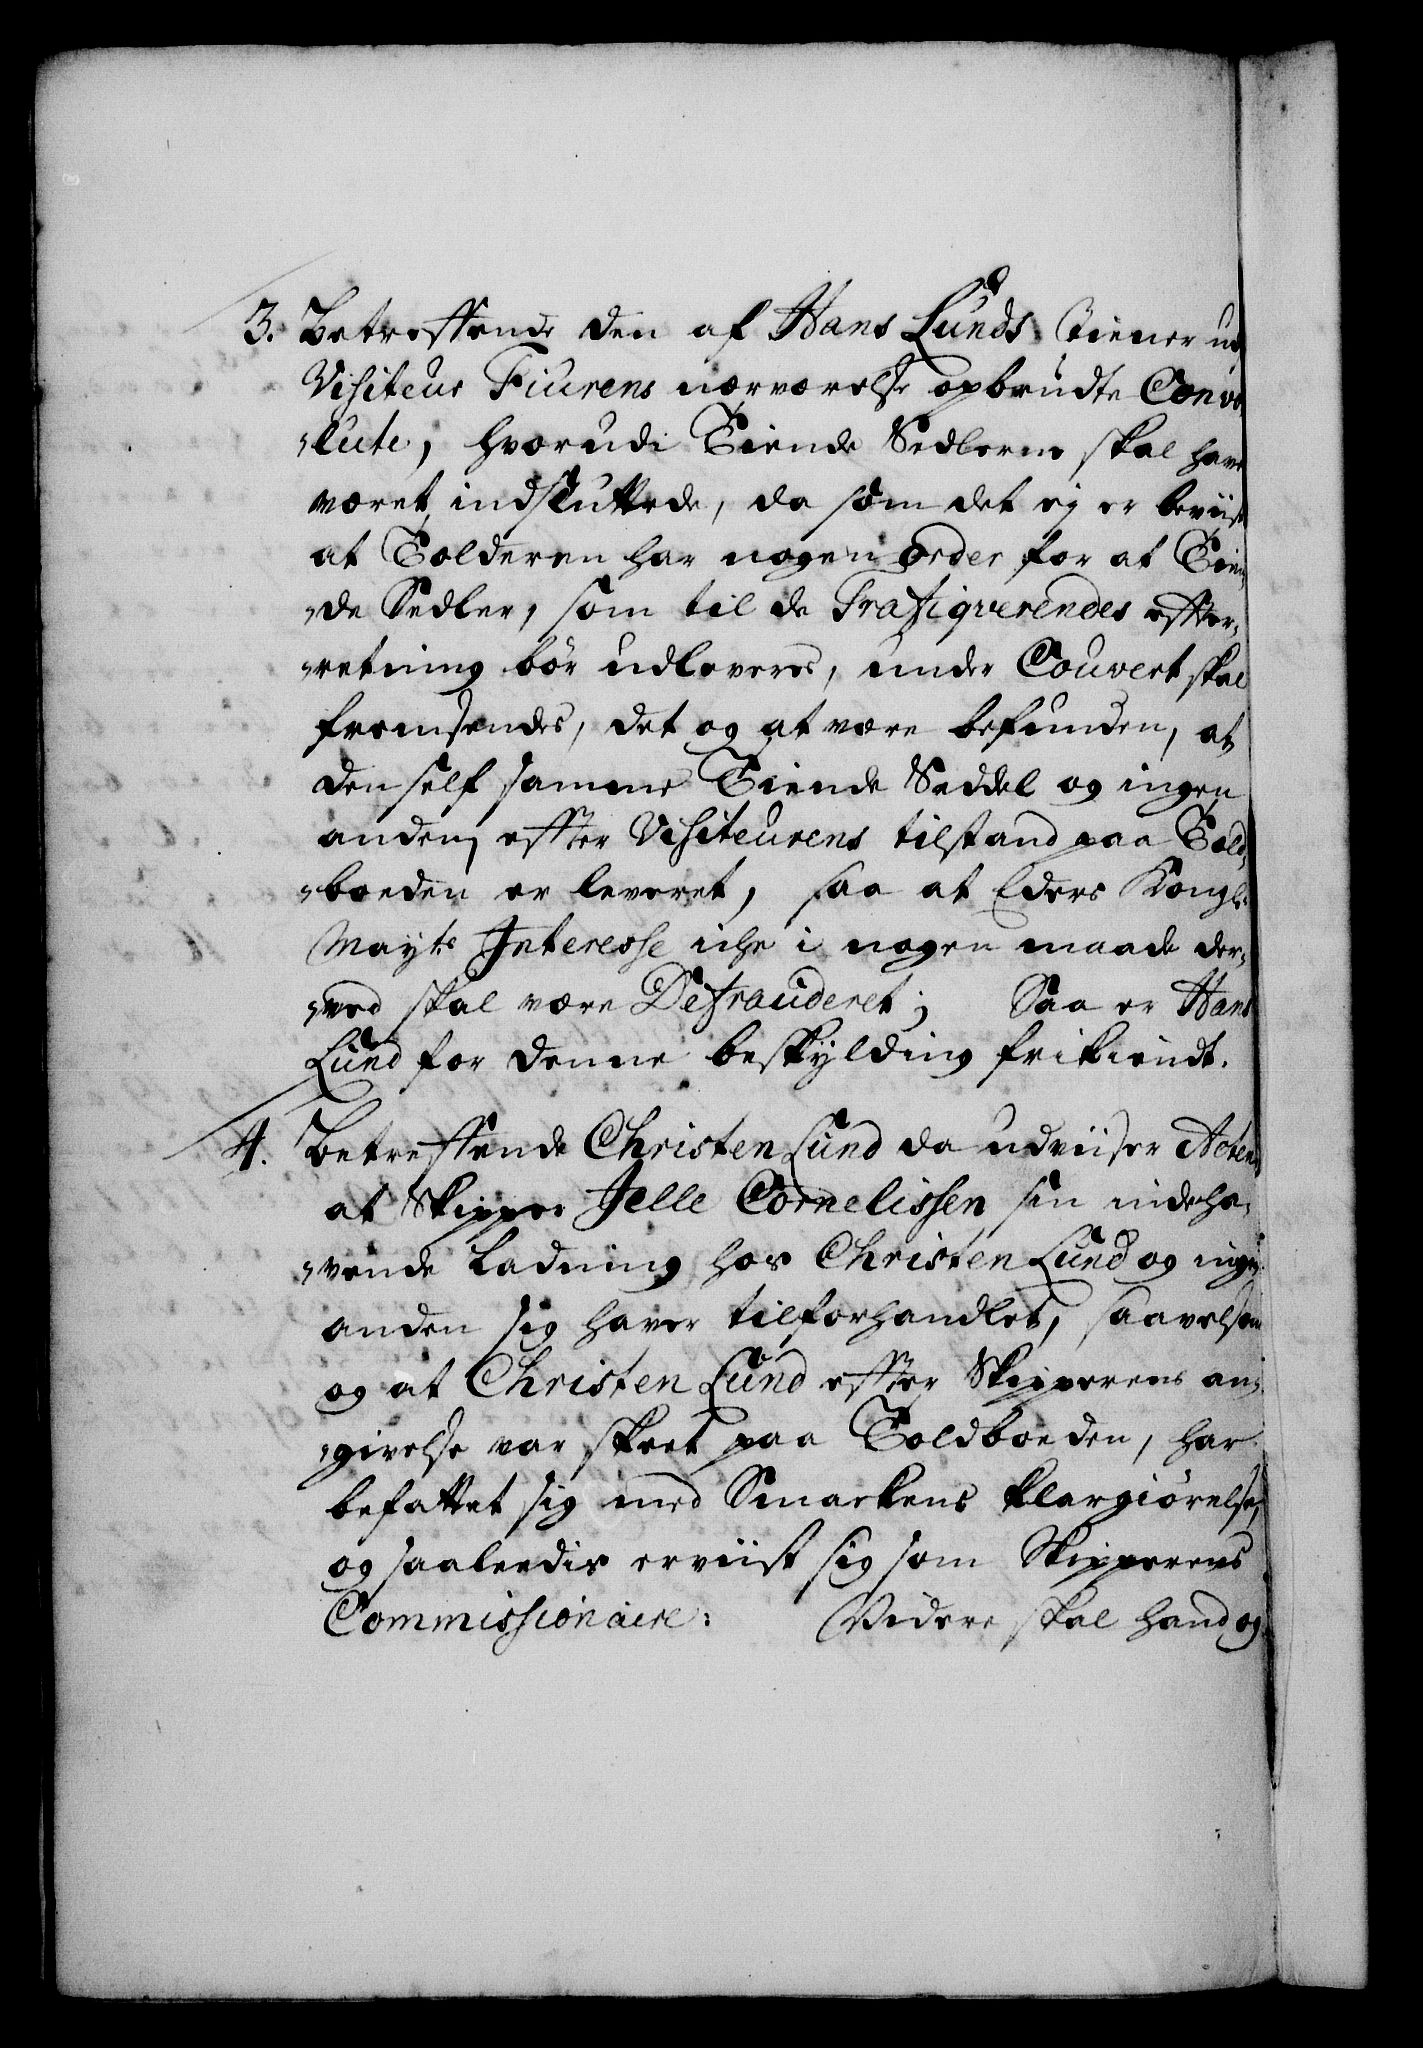 3. Betreffende den af Hans Lunds Tiener ud
Visiteur Fiurens nærværelse opbrudte Convo
-lute, hvorudi Tiende Sedlerne skal have
været indsluttede, da som det ej er beviist
at Tolderen har nogen order for at Tien
-de Sedler, som til de Trafiqverendes effter-
-retning bør udleveres, under Couvert skal
fremsendes, det og at være befunden, at
den self samme Tiende Seddel og ingen
anden, effter Visiteurens tilstand paa Told-
-boeden er leveret, saa at Eders Kongl:
Mayts Interesse iche i nogen maade der-
-ved skal være Defrauderet; Saa er Hans
Lund for denne beskylding frikiendt.
4. Betreffende Christen Lund da udviiser Acten
at Skipper Jelle Cornelissen sin indeha-
-vende Ladning hos Christen Lund og ingen
anden sig haver tilforhandlet, saavelsom
og at Christen Lund effter Skipperens an-
-givelse var skeet paa Toldboeden, har
befattet sig med Smackens klargiørelse,
og saaleedis erviist sig som Skipperens
Commissionaire: Videre skal hand og